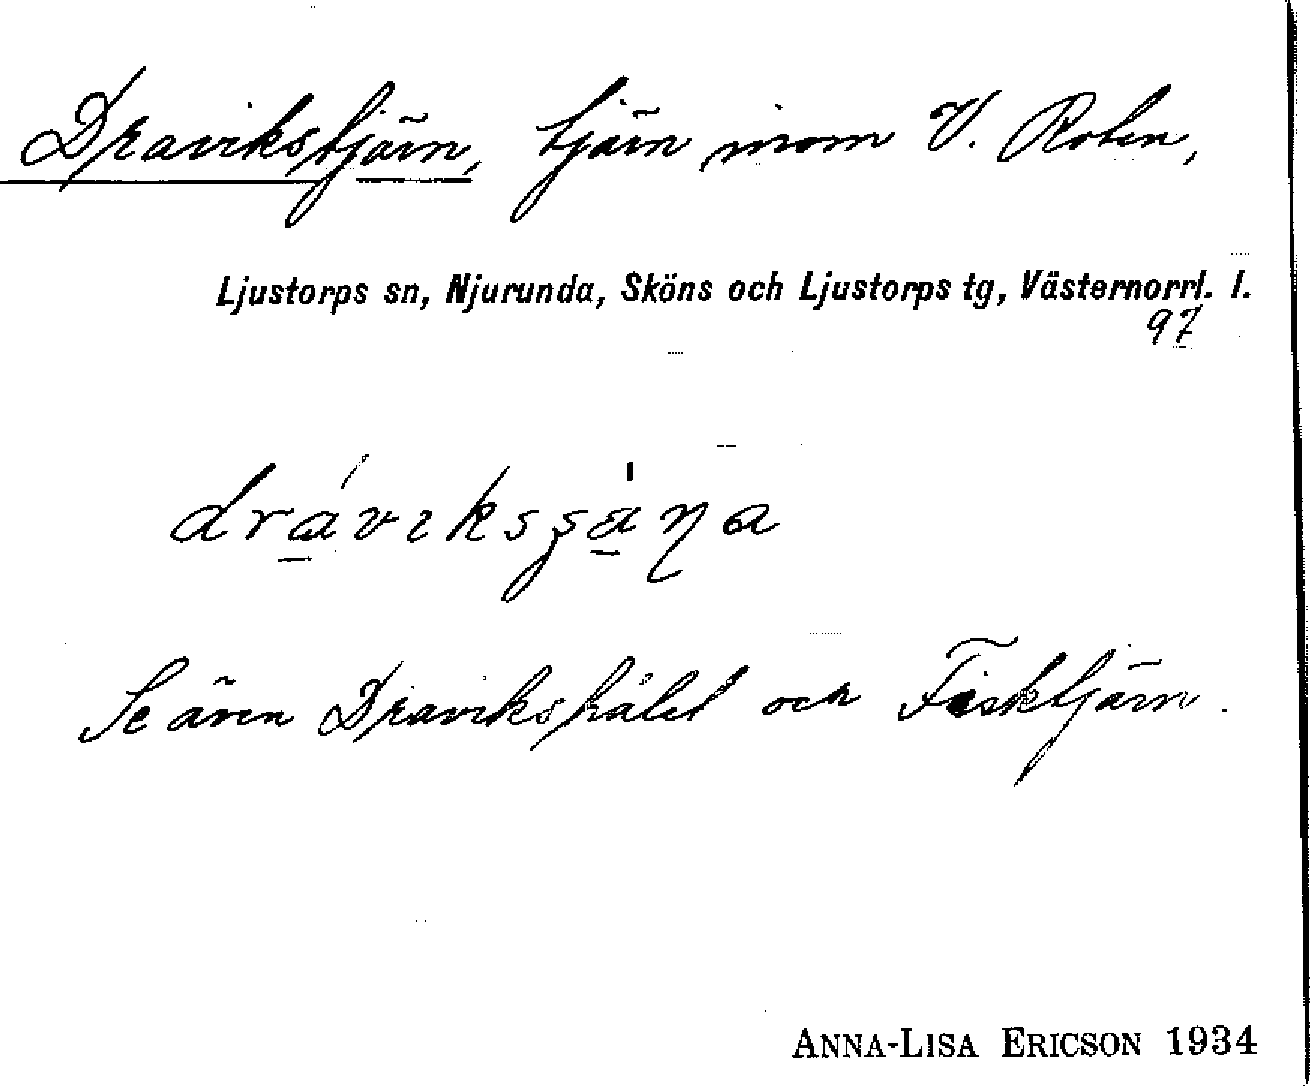 Dravikstjärn, tjärn inom V. Roten,
Ljustorps sn, Njurunda, Sköns och Ljustorps tg, Västernorrl. l.
97
Se även Dravikshålet och Fisktjärn.
ANNA-LISA ERICSON 1934